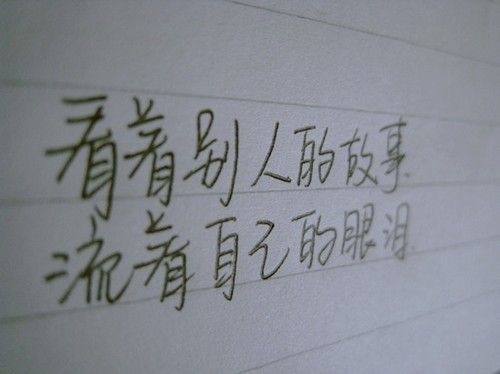 看着别人的故事
流着自己的眼泪